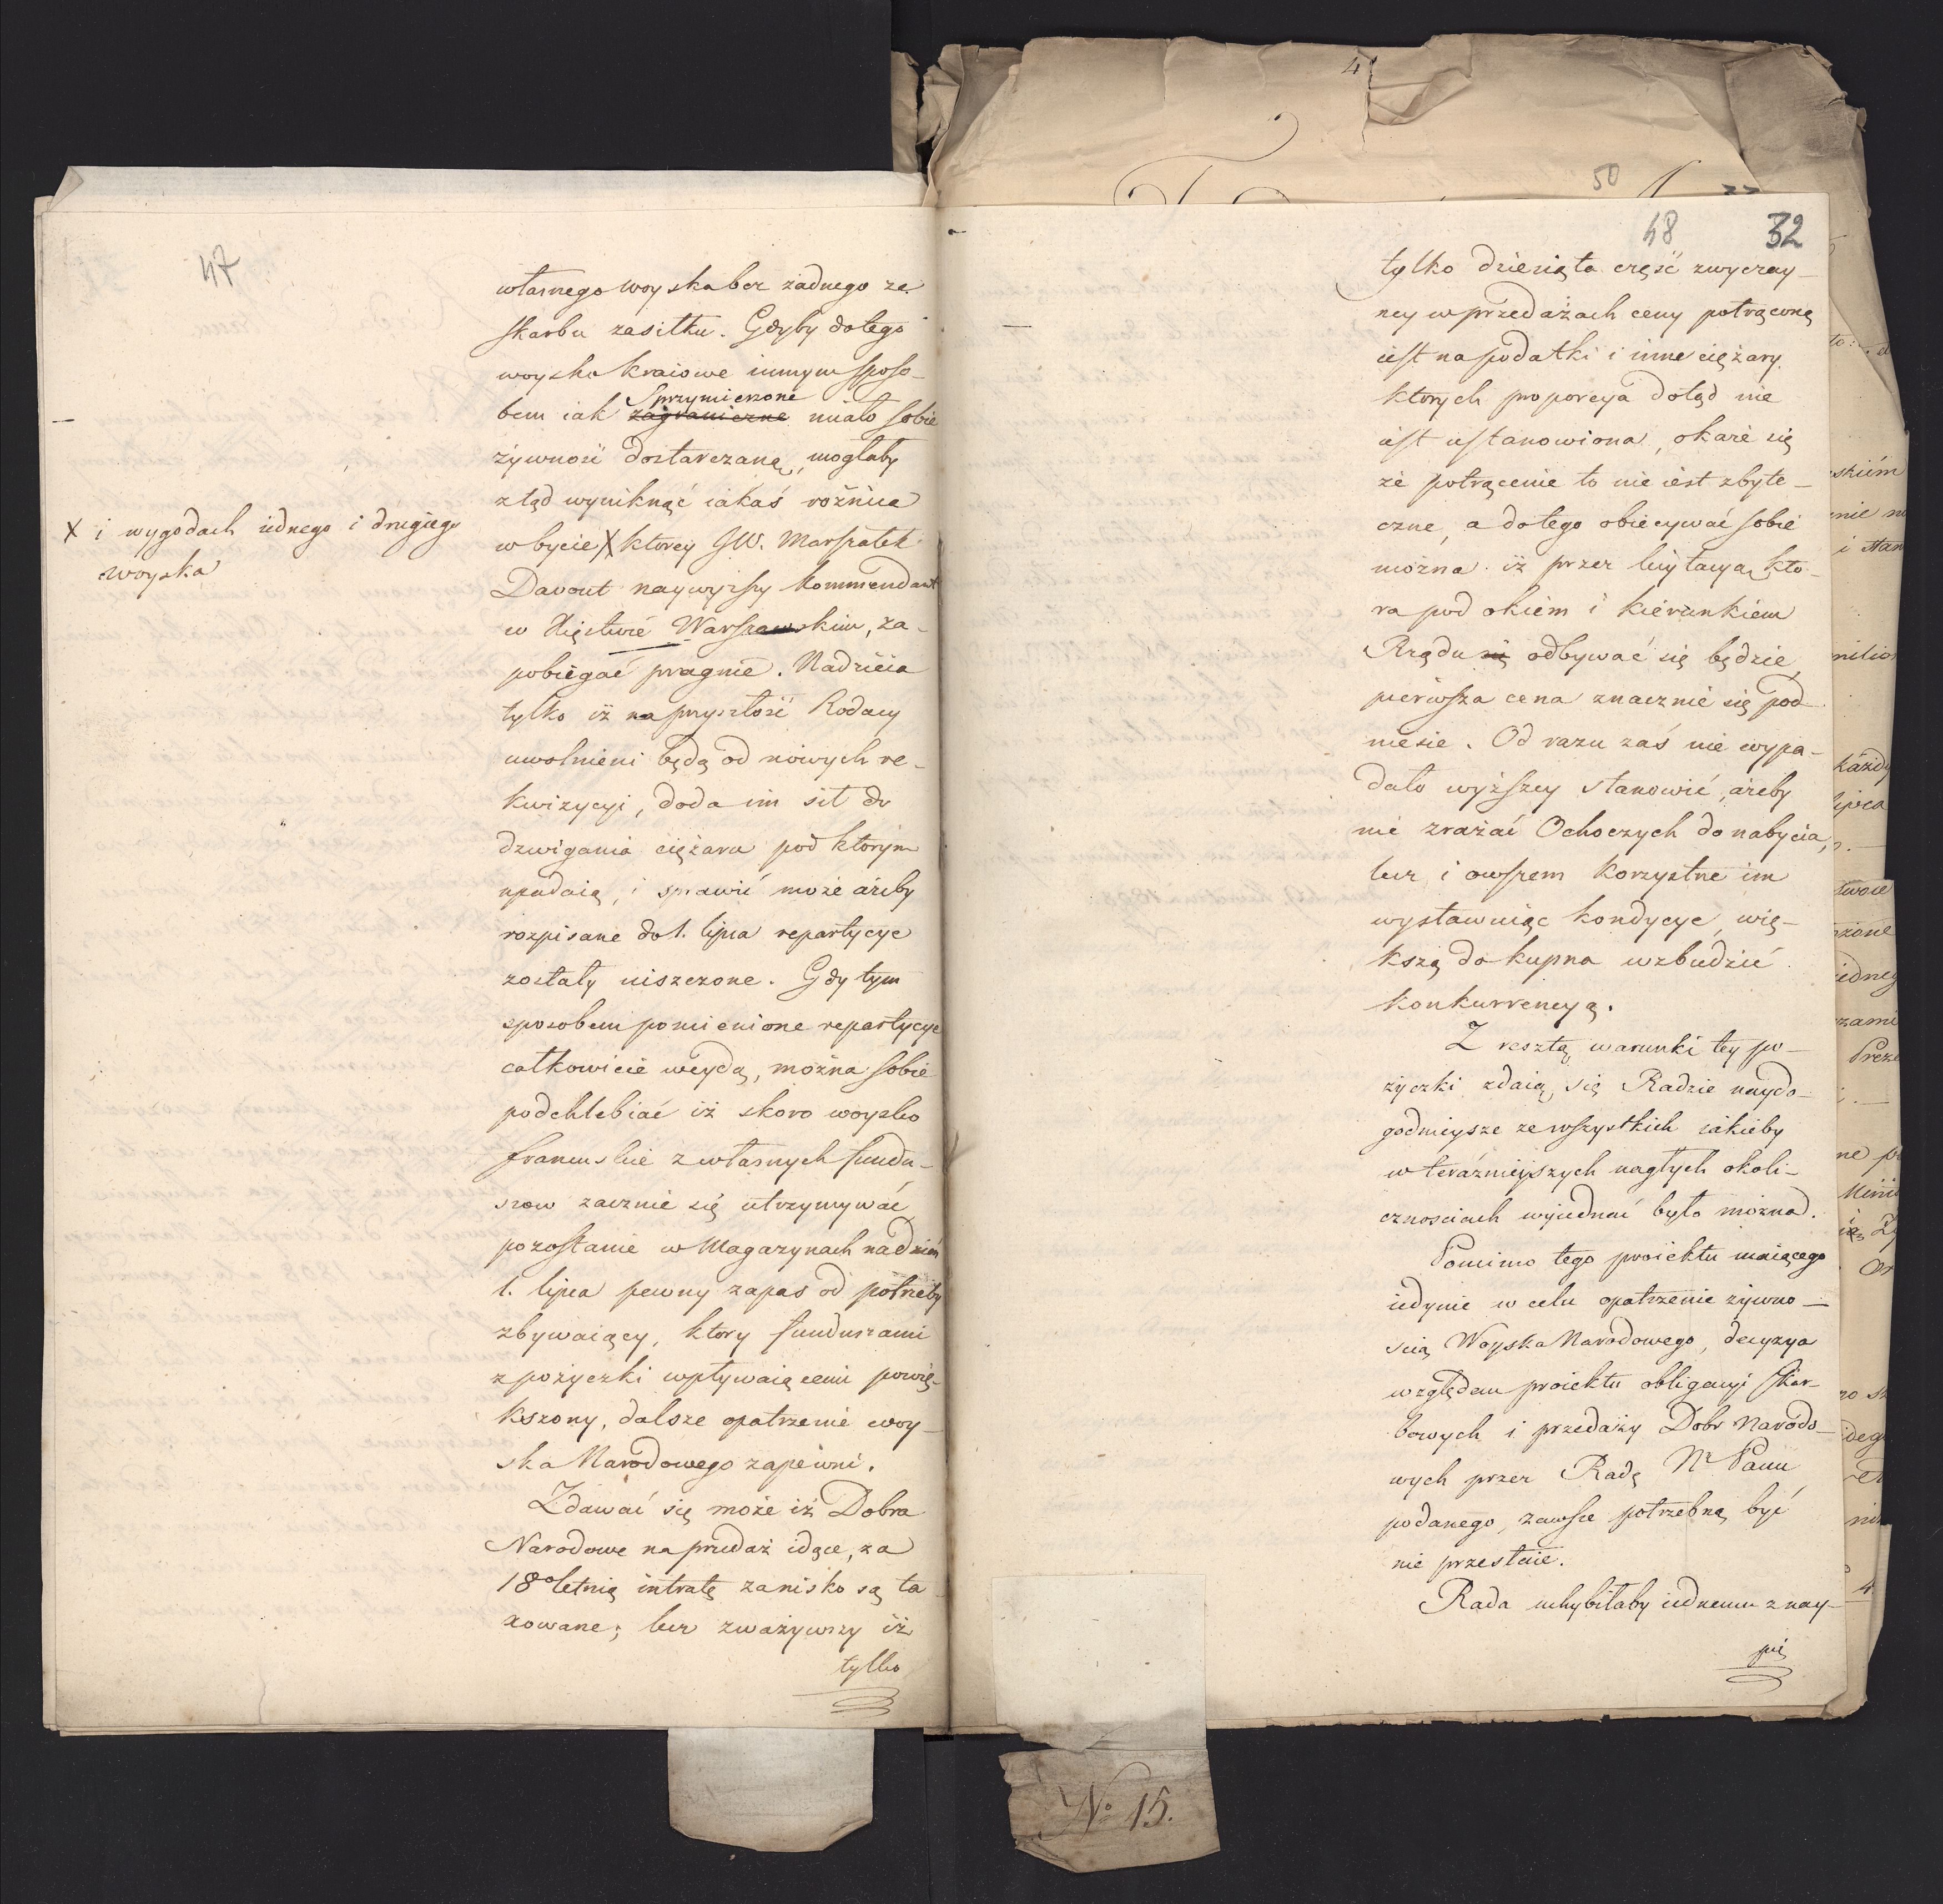 47
własnego woyska bez żadnego ze
skarbu zasiłku. Gdyby do tego
woysko kraiowe innym sposo-
Sprzymierzone
bem iak zagraniczne miało sobie
żywność dostarczaną, mogłaby
ztąd wyniknąć iakaś rożnica
w bycie X ktorey JW. Marszałek
X i wygodach iednego i drugiego
woyska
Davout naywyższy Kommendant
w Xięstwie Warszawskim, za-
pobiegać pragnie. Nadzieia
tylko iż na przyszłość Rodacy
uwolnieni będą od nowych re-
kwizycyi, doda im sił do
dzwigania ciężaru pod ktorym
upadaią, i sprawić może ażeby
rozpisane do 1. lipca repartycye
zostały uiszczone. Gdy tym
sposobem pomienione repartycye
całkowicie weydą, można sobie
podchlebiać iż skoro woysko
francuskie z własnych fundu-
szow zacznie się utrzymywać
pozostanie w Magazynach na dzień
1. lipca pewny zapas od potrzeby
zbywaiący, ktory funduszami
z pożyczki wpływaiącemi powię-
kszony, dalsze opatrzenie woy-
ska Narodowego zapewni.
Zdawać się może iż Dobra
Narodowe na przedaż idące, za
18º letnią intratę zanisko są ta-
xowane; lecz zważywszy iż
tylko
50
48 32
tylko dziesiąta część zwyczay-
ney w przedażach ceny potrąconą
iest na podatki i inne ciężary
ktorych proporcya dotąd nie
iest ustanowiona, okaże się
że potrącenie to nie iest zbyte-
czne, a do tego obiecywać sobie
można iż przez licytacyą kto-
ra pod okiem i kierunkiem
Rządu się odbywać się będzie,
pierwsza cena znacznie się pod-
niesie. Od razu zaś nie wypa-
dało wyższey stanowić, ażeby
nie zrażać Ochoczych do nabycia,
lecz i owszem korzystne im
wystawuiąc kondycye, wię-
kszą do kupna wzbudzić
konkurrencyą.
Z resztą, warunki tey po-
życzki zdaią się Radzie naydo-
godnieysze ze wszystkich iakieby
w teraźnieyszych nagłych okoli-
cznosciach wyiednać było można.
Pomimo tego proiektu maiącego
iedynie w celu opatrzenie żywno-
scią Woyska Narodowego, decyzya
względem proiektu obligacyi skar-
bowych i przedaży Dobr Narodo-
wych przez Radę Nr Panu
podanego, zawsze potrzebną być
nie przestaie.
Rada uchybiłaby iednemu z nay-
pię
Nº 15.